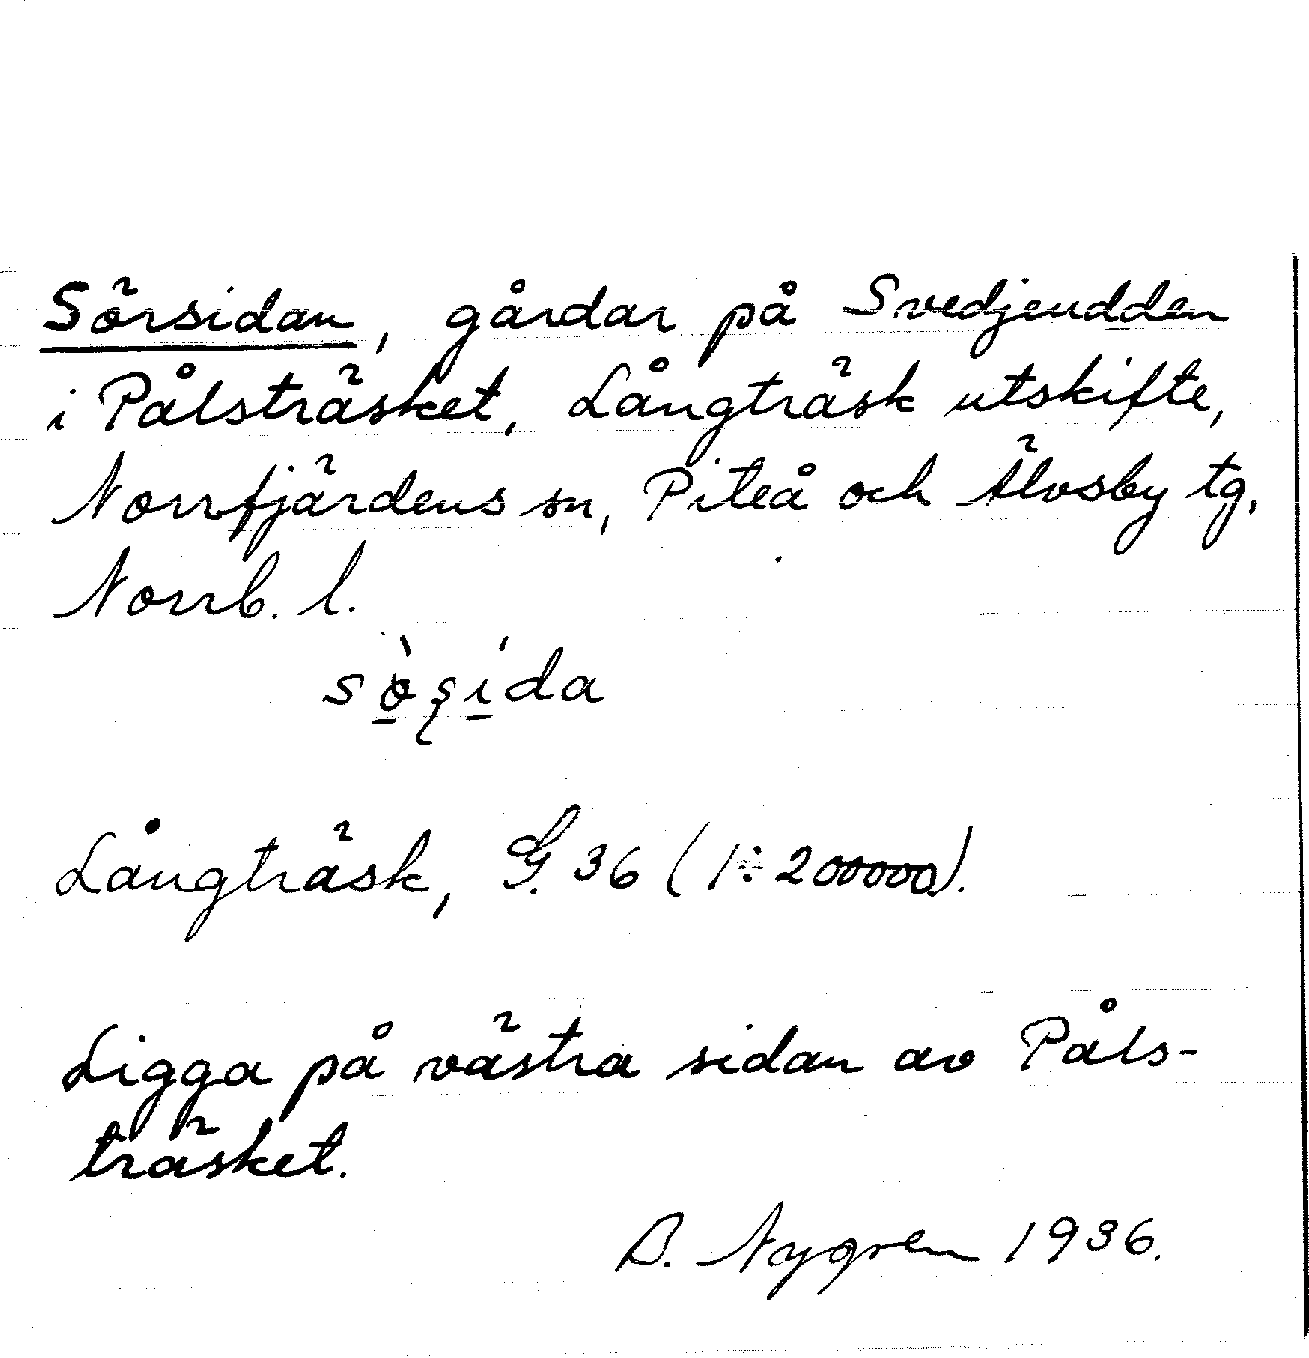 Sörsidan, gårdar på Svedjeudden
i Pålsträsket, Långträsk utskifte,
Norrfjärdens sn, Piteå och Älvsby tg,
Norrb. l.
Långträsk, G. 36 (1:200000).
Ligga på västra sidan av Påls-
träsket.
Nygren 1936.